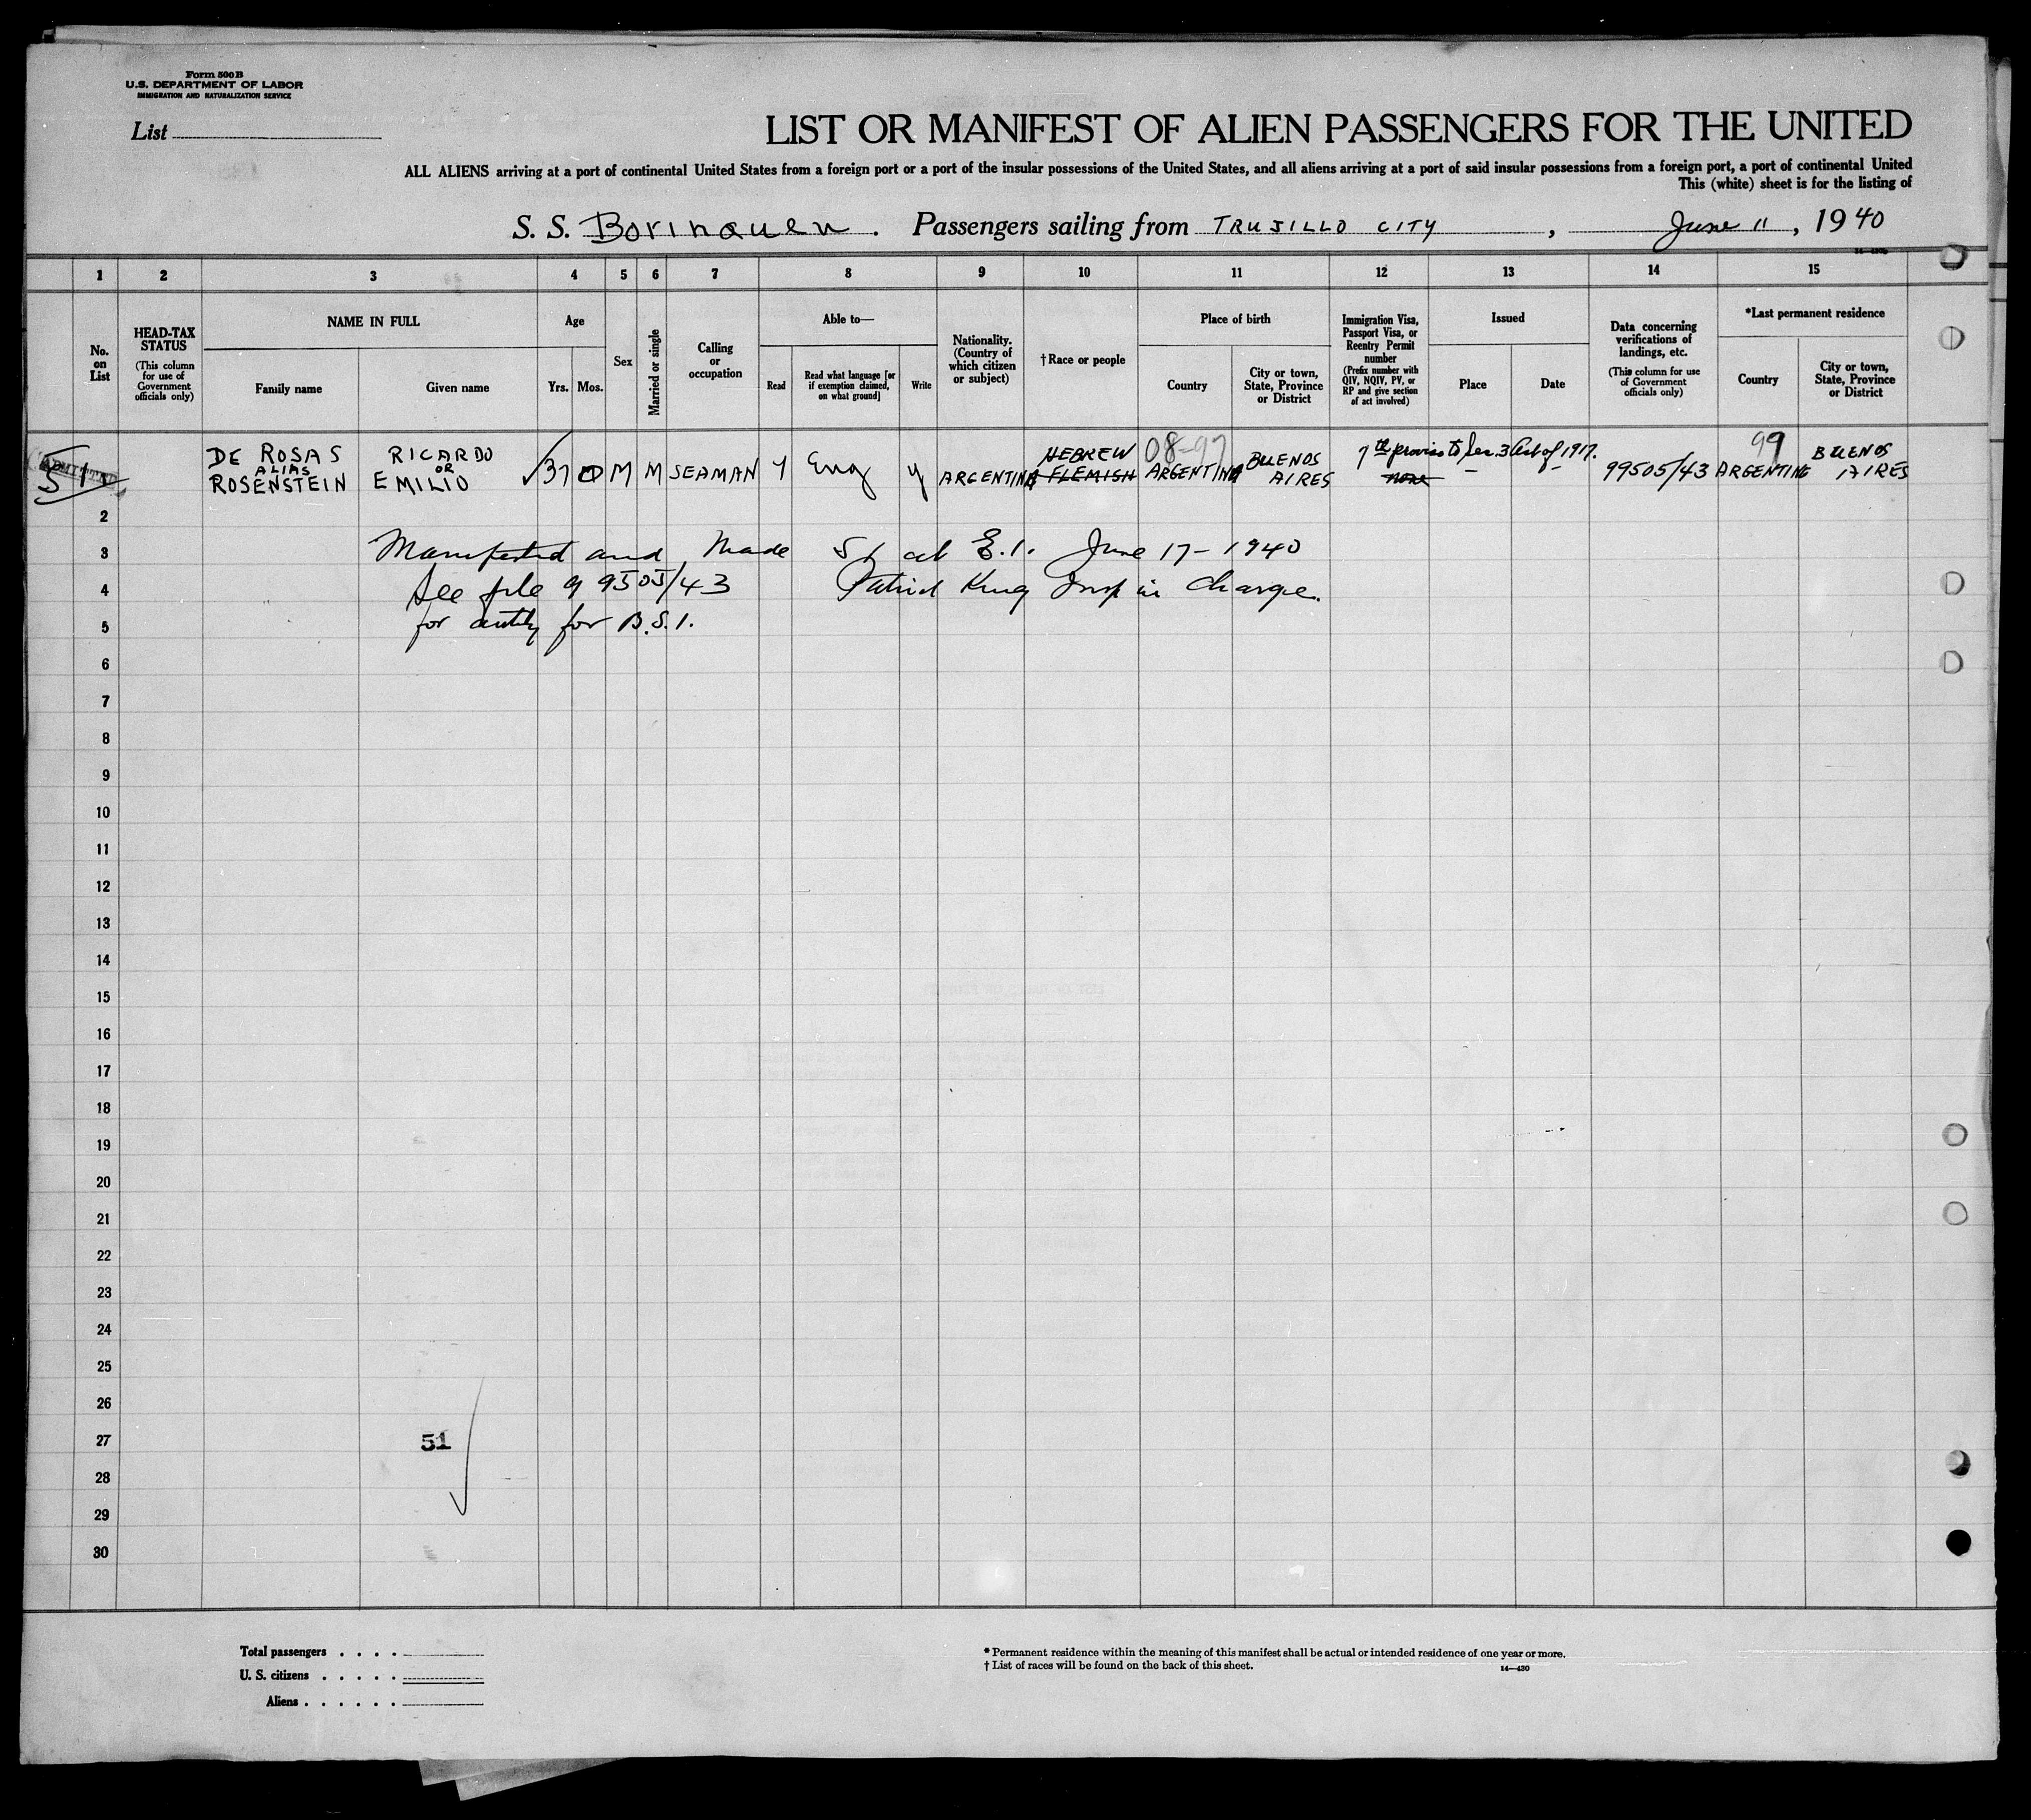 Form 500 B
U.S. DEPARTMENT OF LABOR
IMMIGRATION AND NATURALIZATION SERVICE
List
LIST OR MANIFEST OF ALIEN PASSENGERS FOR THE UNITED
ALL ALIENS arriving at a port of continental United States from a foreign port or a port of the insular possessions of the United States, and all aliens arriving at a port of said insular possessions from a foreign port, a port of continental United
This (white) sheet is for the listing of
S. S. Borinquen . Passengers sailing from TRUJILLO CITY , June 11 , 1940
1 2 3 4 5 6 7 8 9 10 11 12 13 14 15
No. on List
HEAD-TAX STATUS
(This column for use of Government officials only)
NAME IN FULL
Family name
Given name
Age
Yrs.
Mos.
Sex
Married or single
Calling or occupation
Able to—
Read
Read what language [or if exemption claimed, on what ground]
Write
Nationality. (Country of which citizen or subject)
†Race or people
Place of birth
Country
City or town, State, Province or District
Immigration Visa, Passport Visa, or Reentry Permit number
(Prefix number with QIV, NQIV, PV, or RP and give section of act involved)
Issued
Place
Date
Data concerning verifications of landings, etc.
(This column for use of Government officials only)
*Last permanent residence
Country
City or town, State, Province or District
HEBREW 08-97 99
DE ROSAS RICARDO BUENOS 7th proviso to Sec. 3 Act of 1917. BUENOS
ALIAS OR
5 1 ROSENSTEIN EMILIO 37 0 M M SEAMAN Y Eng y ARGENTINE FLEMISH ARGENTINE AIRES none – – 99505/43 ARGENTINE AIRES
2
3 Manifested and made at E.I. June 17-1940
4 See file 99505/43 Patrick King Insp in Charge.
5 for for B.S.I.
6
7
8
9
10
11
12
13
14
15
16
17
18
19
20
21
22
23
24
25
26
27 51
28
29
30
Total passengers . . . .
U. S. citizens . . . . .
Aliens . . . . . .
* Permanent residence within the meaning of this manifest shall be actual or intended residence of one year or more.
† List of races will be found on the back of this sheet.
14—430